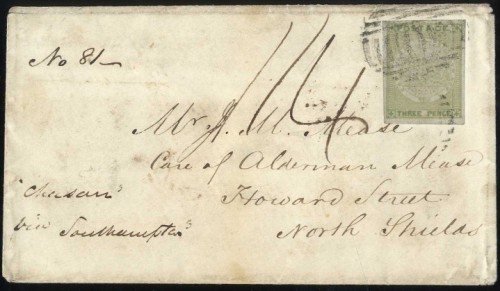 POSTAGE
THREE PENCE
No 81
1/4
Mr J. M. Mease
Care of Alderman Mease
Howard Street
North Shields
"Chusan"
via Southampton